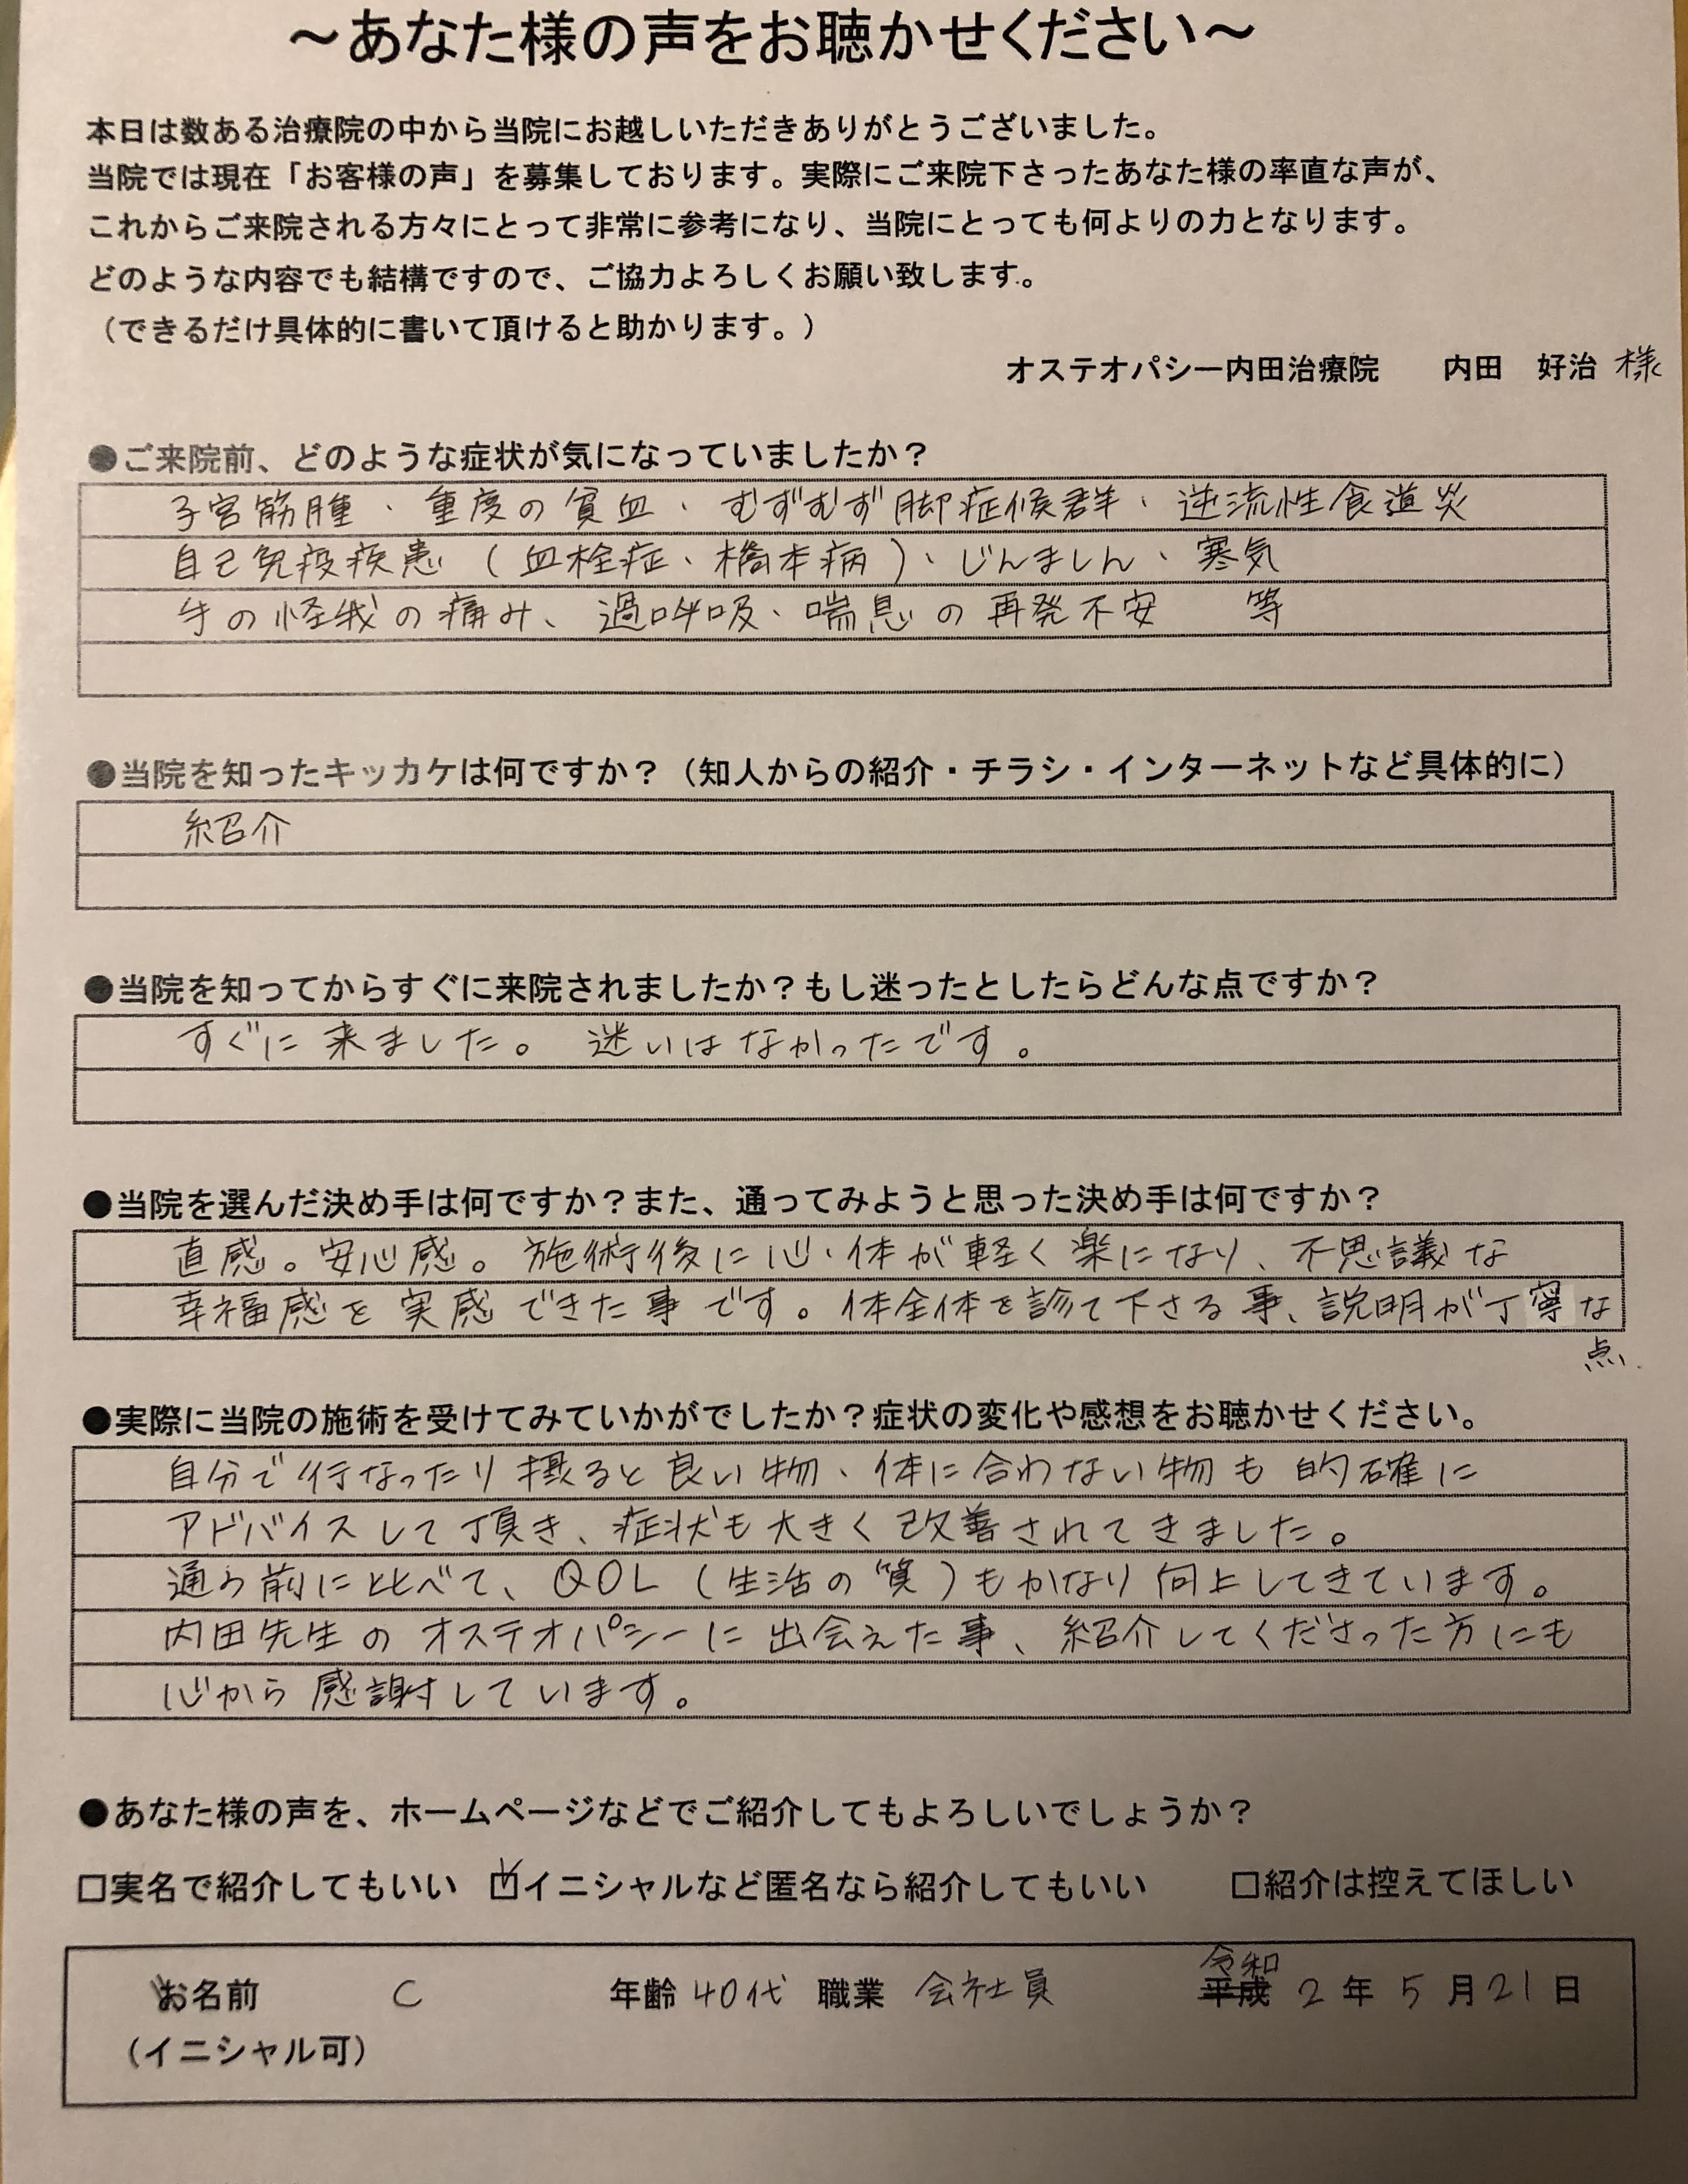 ～あなた様の声をお聴かせください～
本日は数ある治療院の中から当院にお越しいただきありがとうございました。
当院では現在「お客様の声」を募集しております。実際にご来院下さったあなた様の率直な声が、
これからご来院される方々にとって非常に参考になり、当院にとっても何よりの力となります。
どのような内容でも結構ですので、ご協力よろしくお願い致します。
（できるだけ具体的に書いて頂けると助かります。）
オステオパシー内田治療院　内田　好治 様
●ご来院前、どのような症状が気になっていましたか？
子宮筋腫・重度の貧血・むずむず脚症候群・逆流性食道炎
自己免疫疾患（血栓症・橋本病）・じんましん・寒気
手の怪我の痛み、過呼吸・喘息の再発不安　等
●当院を知ったキッカケは何ですか？（知人からの紹介・チラシ・インターネットなど具体的に）
紹介
●当院を知ってからすぐに来院されましたか？もし迷ったとしたらどんな点ですか？
すぐに来ました。迷いはなかったです。
●当院を選んだ決め手は何ですか？また、通ってみようと思った決め手は何ですか？
直感。安心感。施術後に心・体が軽く楽になり、不思議な
幸福感を実感できた事です。体全体を診て下さる事、説明が丁寧な
点、
●実際に当院の施術を受けてみていかがでしたか？症状の変化や感想をお聴かせください。
自分で行なったり摂ると良い物、体に合わない物も的確に
アドバイスして頂き、症状も大きく改善されてきました。
通う前に比べて、QOL（生活の質）もかなり向上してきています。
内田先生のオステオパシーに出会えた事、紹介してくださった方にも
心から感謝しています。
●あなた様の声を、ホームページなどでご紹介してもよろしいでしょうか？
□実名で紹介してもいい　☑イニシャルなど匿名なら紹介してもいい　□紹介は控えてほしい
令和
お名前　C　年齢 40代 職業 会社員　平成 2 年 5 月 21 日
（イニシャル可）